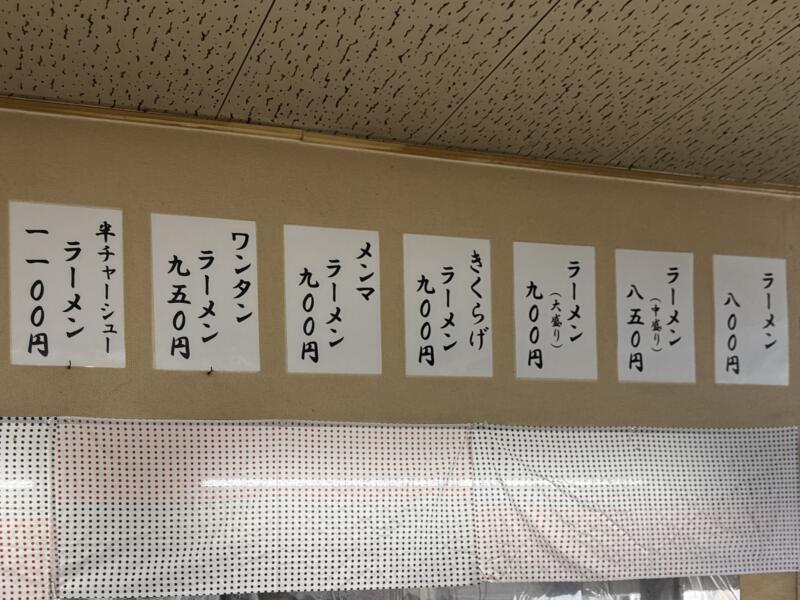 ラーメン
八００円
ラーメン
（中盛り）
八五０円
ラーメン
（大盛り）
九００円
きくらげ
ラーメン
九００円
メンマ
ラーメン
九００円
ワンタン
ラーメン
九五０円
半チャーシュー
ラーメン
一一００円